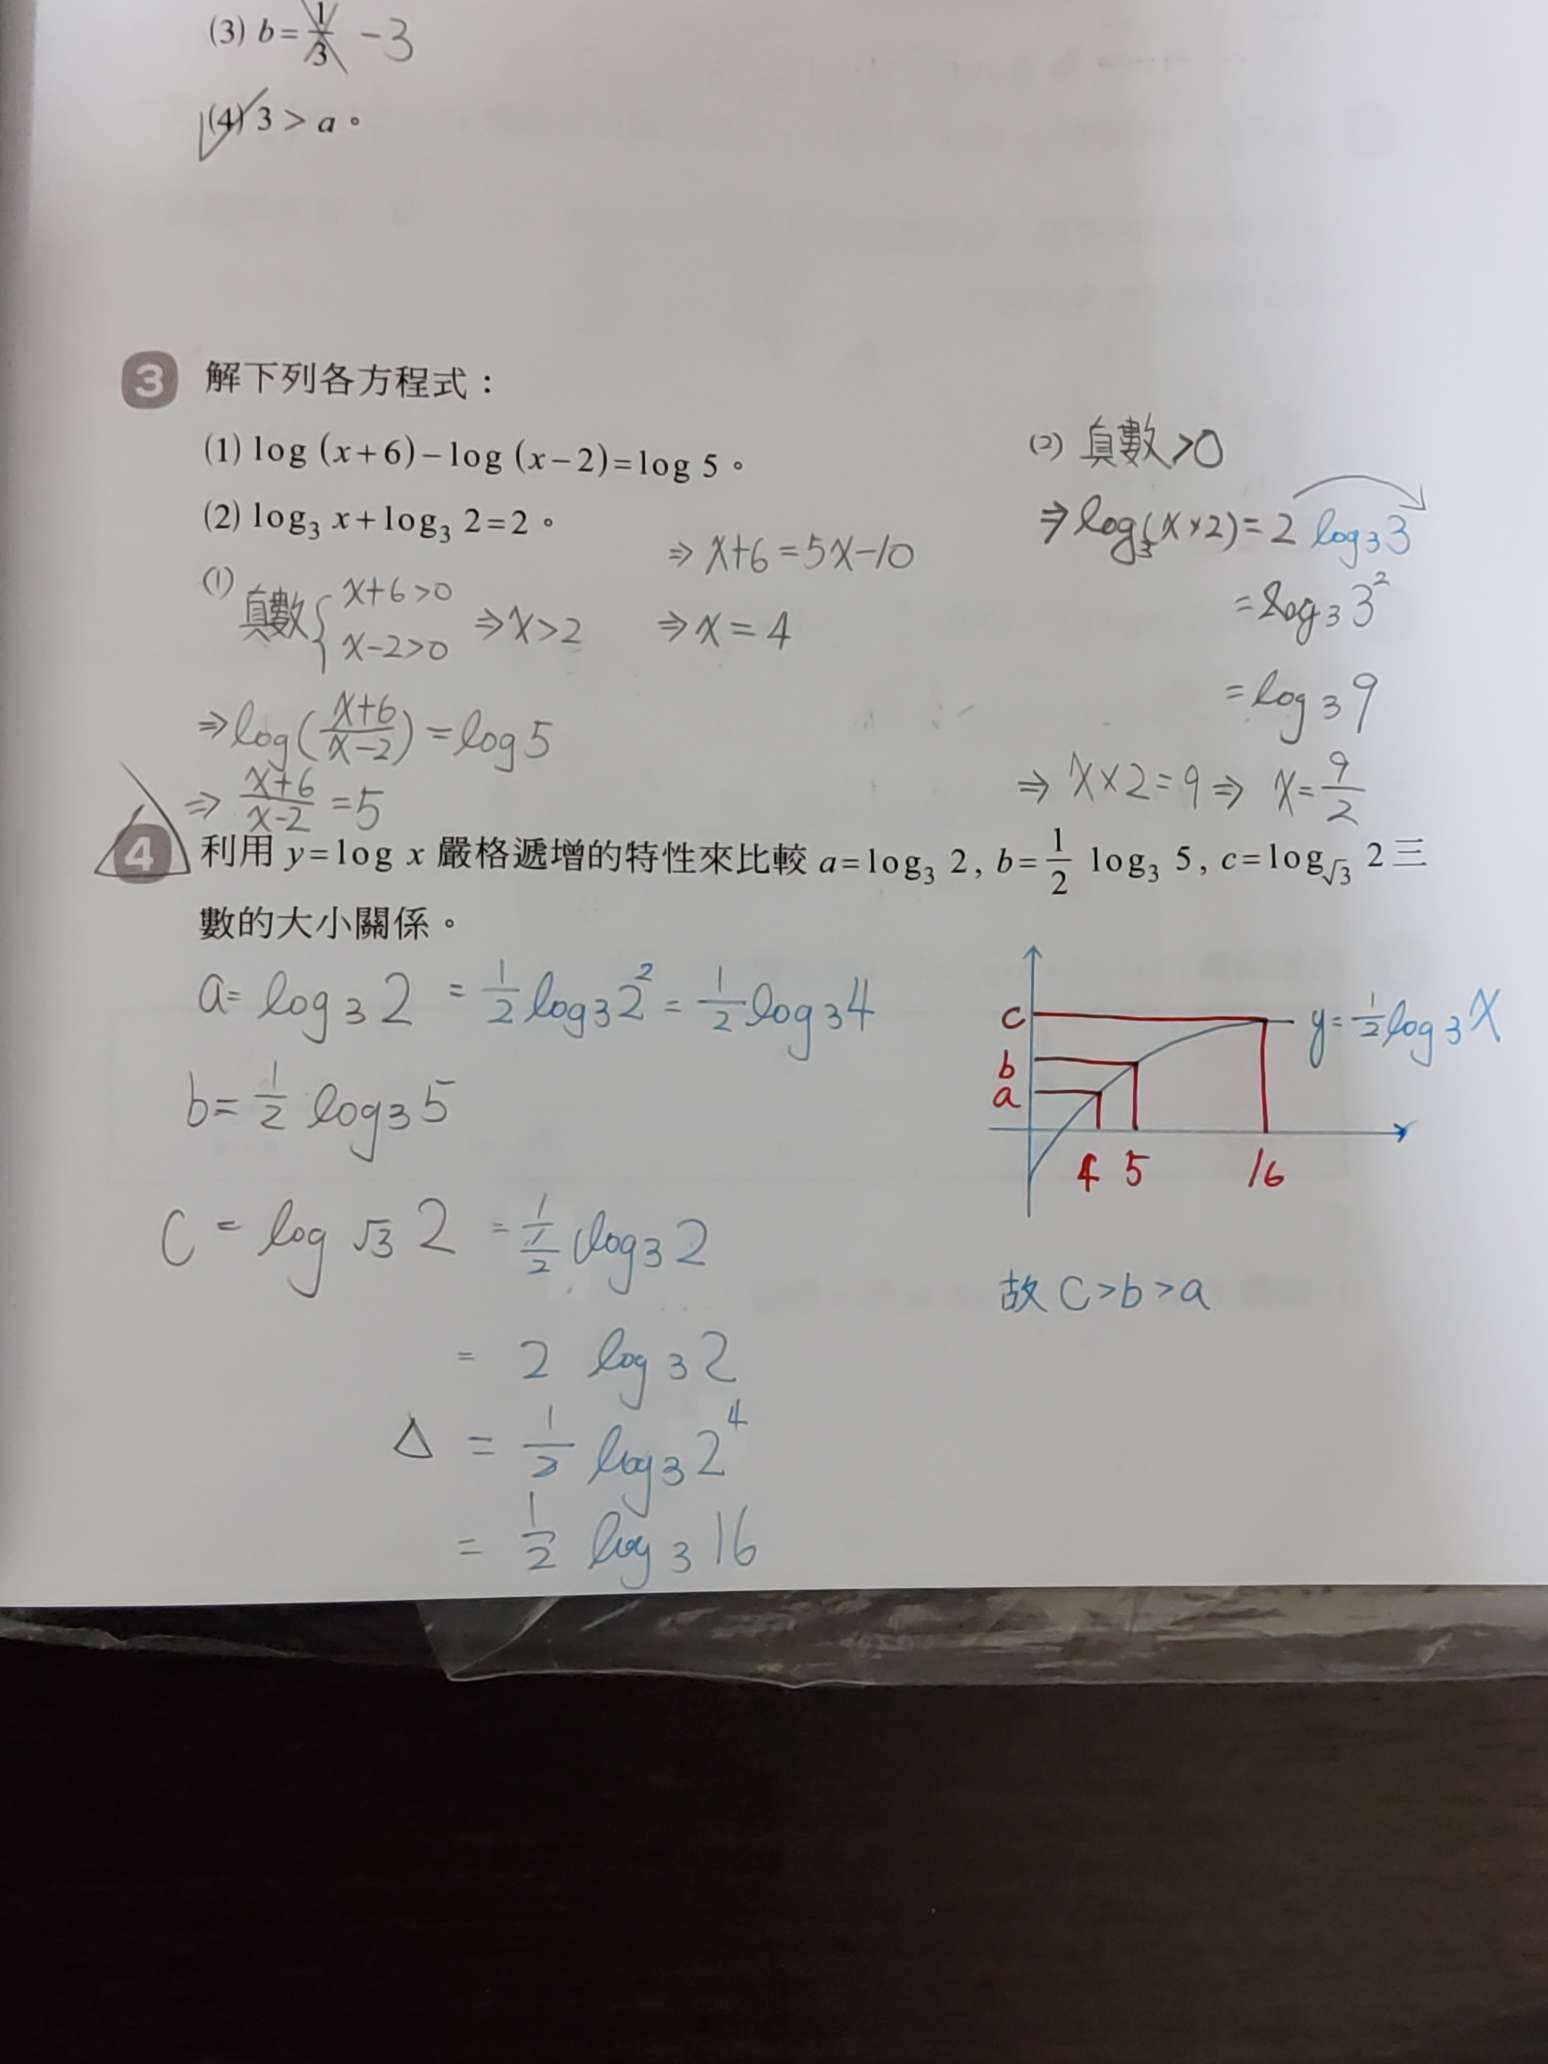 (3) b= 1/3 -3
(4) 3 > a。
3 解下列各方程式：
(1) log (x+6)−log (x−2)=log 5。
(2) log₃ x+log₃ 2=2。
(1) 真數 { x+6>0
x-2>0 ⇒x>2
⇒log(x+6/x-2)=log5
⇒ x+6/x-2 =5
⇒ x+6=5x-10
⇒ x=4
(2) 真數>0
⇒log₃(x×2)=2 log₃3
=log₃3²
=log₃9
⇒ x×2=9⇒ x=9/2
4 利用 y=log x 嚴格遞增的特性來比較 a=log₃ 2, b=1/2 log₃ 5, c=log√3 2三
數的大小關係。
a= log₃2 =1/2 log₃2²=1/2 log₃4
b=1/2 log₃5
C = log√3 2 =1/(1/2) log₃2
= 2 log₃2
△ = 1/2 log₃2⁴
= 1/2 log₃16
c
b
a
y=1/2 log₃x
4 5 16
故 C>b>a